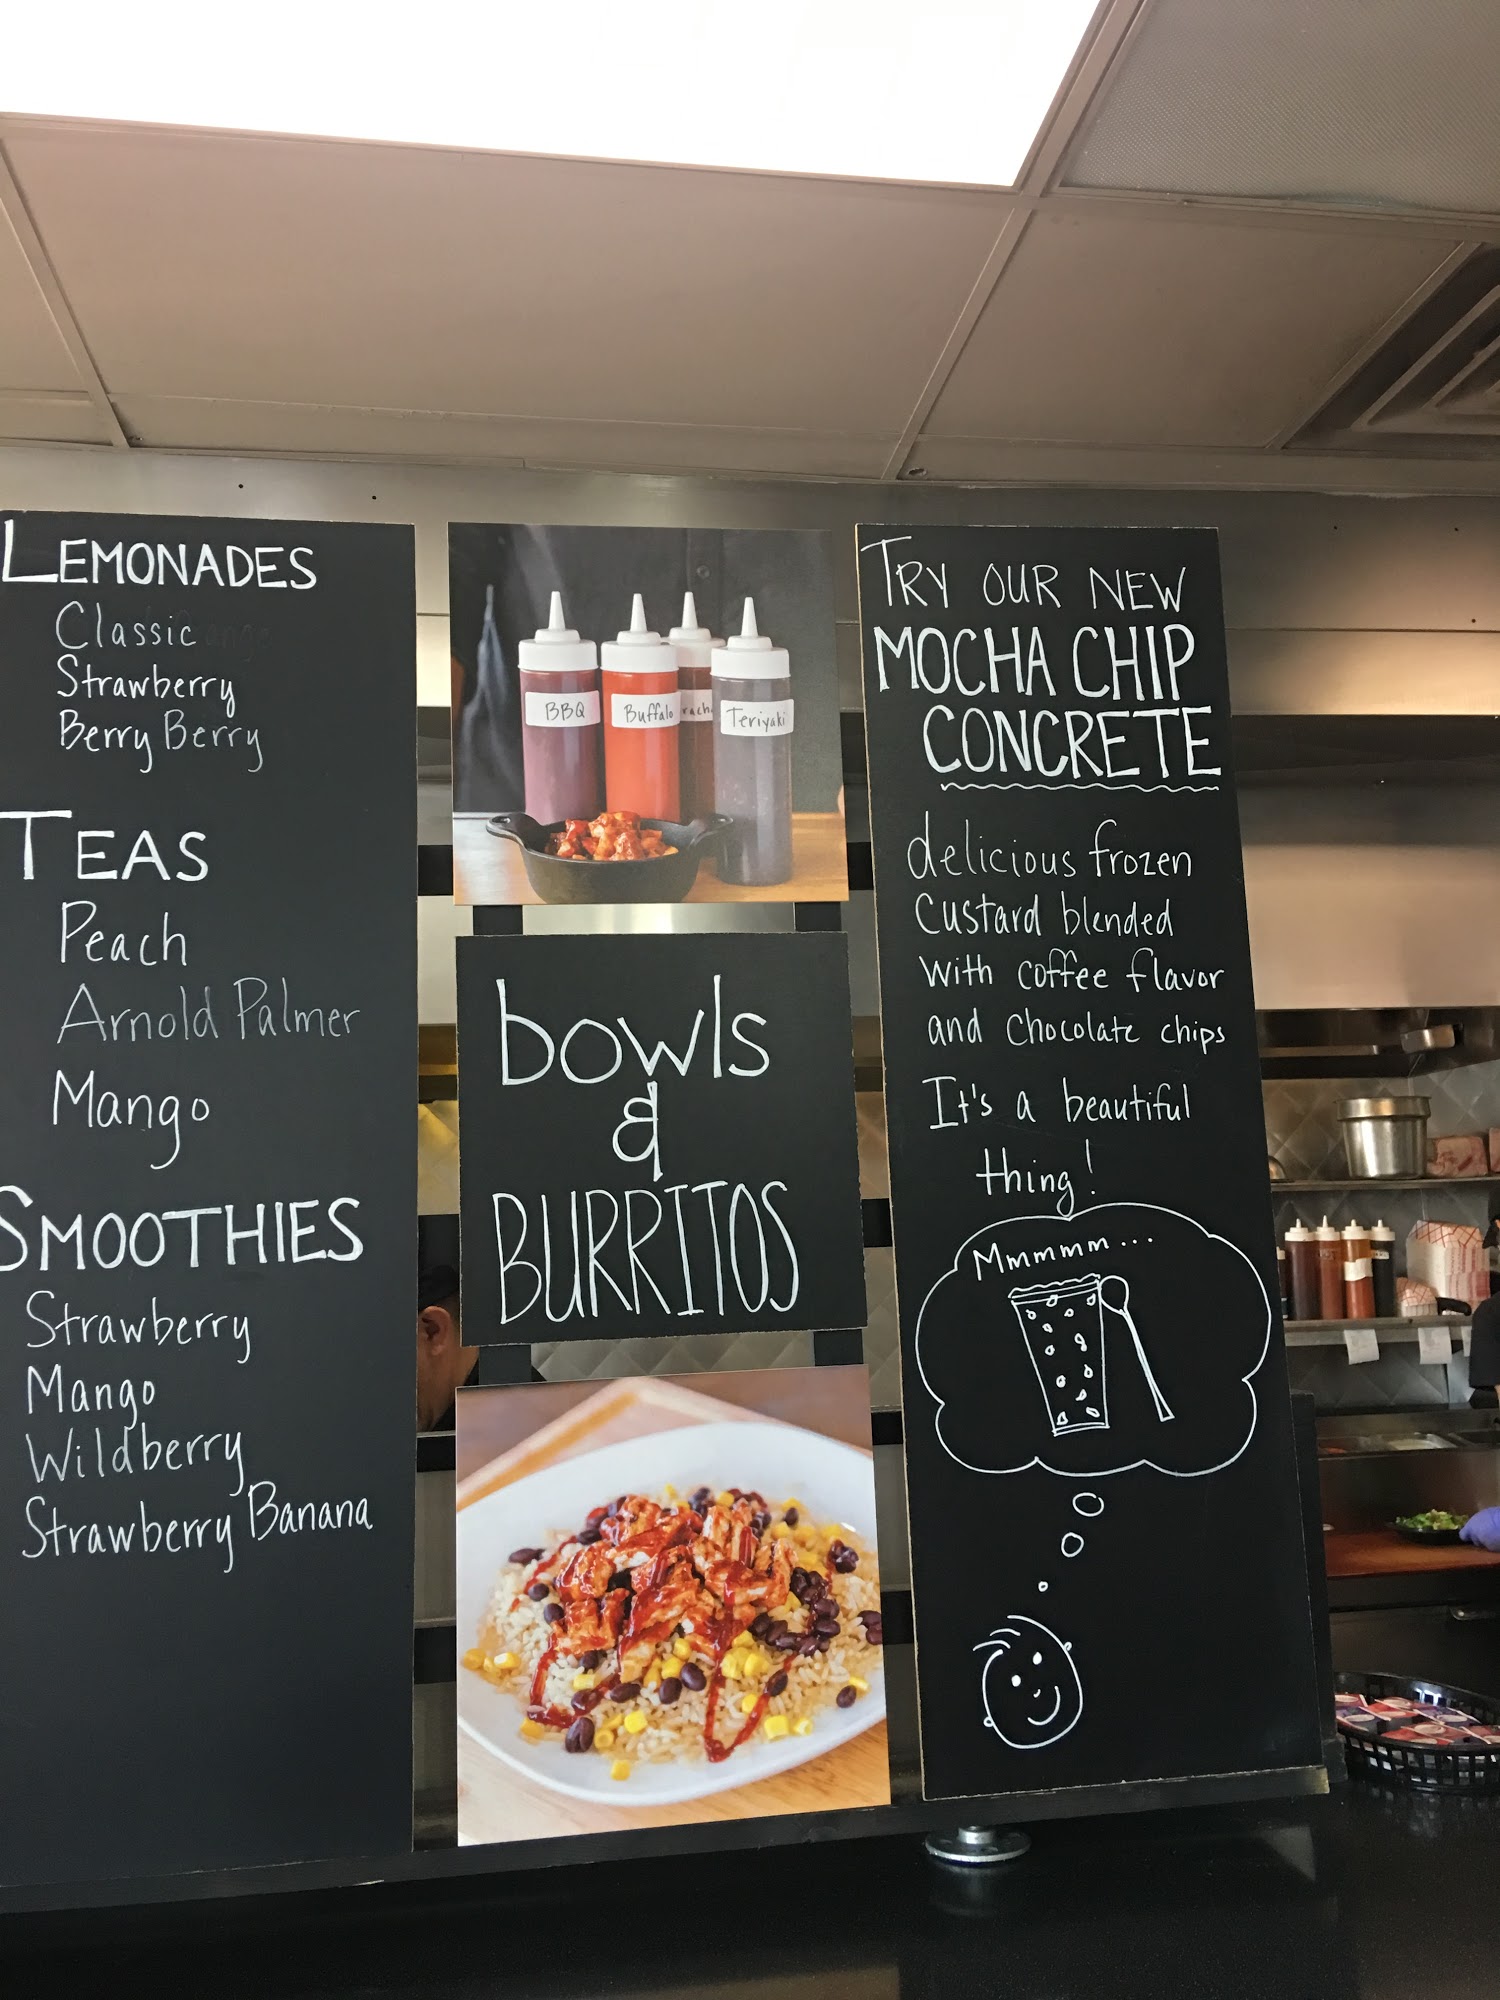 LEMONADES
Classic
Strawberry
Berry Berry
TEAS
Peach
Arnold Palmer
Mango
SMOOTHIES
Strawberry
Mango
Wildberry
Strawberry Banana
BBQ
Buffalo
Teriyaki
bowls
&
BURRITOS
TRY OUR NEW
MOCHA CHIP
CONCRETE
delicious frozen
custard blended
with coffee flavor
and chocolate chips
It's a beautiful
thing!
Mmmmm...